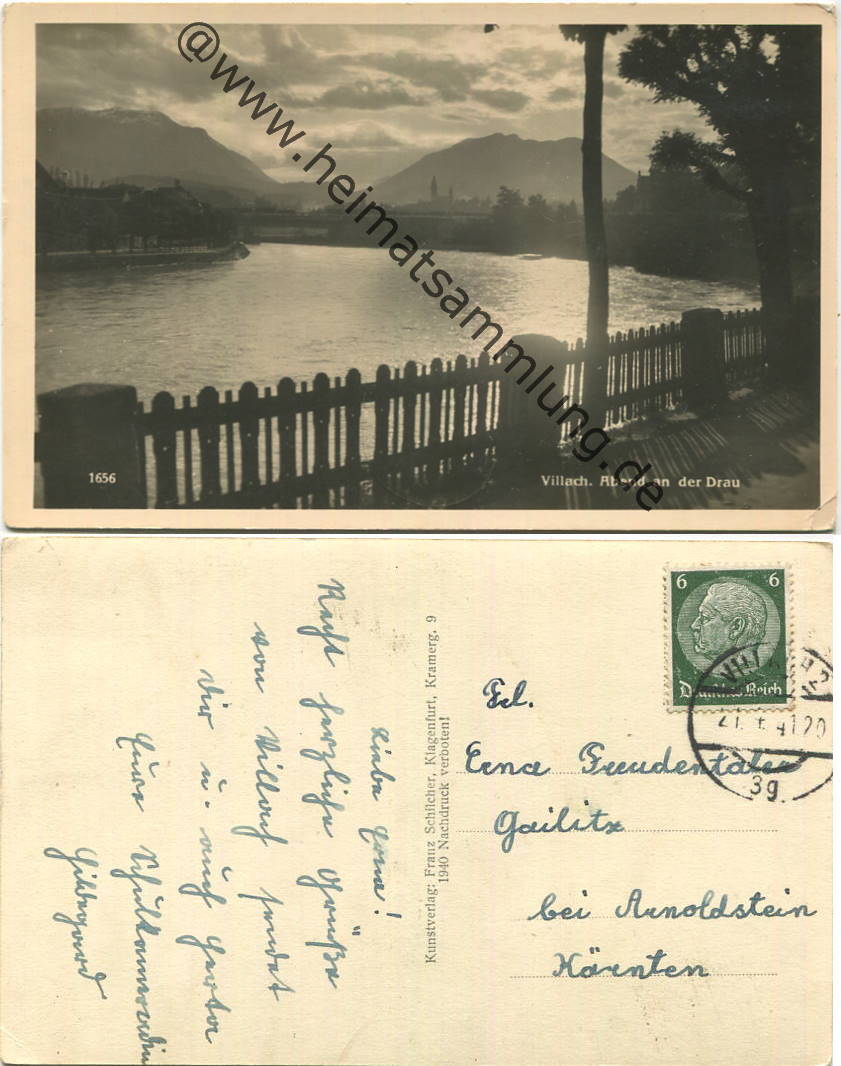 @www.heimatsammlung.de
1656
Villach. Abend an der Drau
6 6
Deutsches Reich
VILLACH 2
41 20
3g
Frl.
Erna Freudentaler
Gailitz
bei Arnoldstein
Kärnten
Kunstverlag: Franz Schilcher, Klagenfurt, Kramerg. 9
1940 Nachdruck verboten!
Liebe Erna!
Recht herzliche Grüße
von Villach sendet
Dir u. auch Herta
Eure Schulkameradin
Hildegard